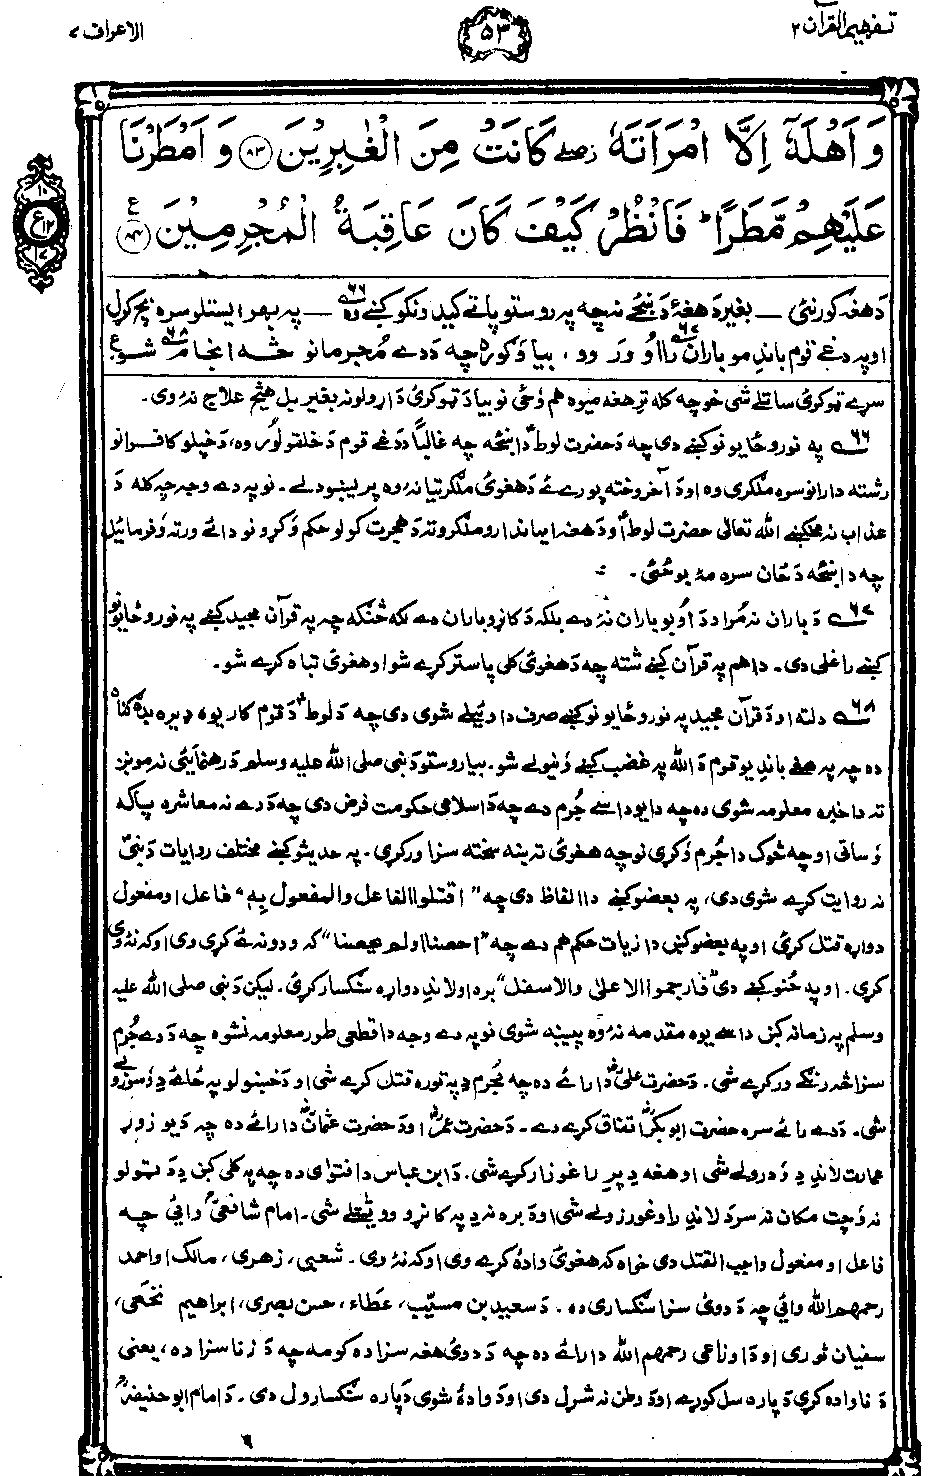 تفهیم القرآن ۲
۵۳
الاعراف ۷
وَاَهْلَهٗٓ اِلَّا امْرَاَتَهٗ ۖ كَانَتْ مِنَ الْغٰبِرِيْنَ ﴿۸۳﴾ وَاَمْطَرْنَا
عَلَيْهِمْ مَّطَرًا ؕ فَانْظُرْ كَيْفَ كَانَ عَاقِبَةُ الْمُجْرِمِيْنَ ﴿۸۴﴾ ع
دَهغه كورنئ — بغير دَهغهٔ دَ ښځے نه چه په روستو پاتے كيدونكو كښے وه ۶۶ — په بهر ايستلو سره بچ كړل
اوپه دغے قوم باندِ مو باران ۶۷ راوُ وَرَ وو، بيا وَ كوره چه دَ دے مُجرمانو څه انجام ۶۸ شو ع
سړے تړو كړئ ساتلے شی خو چه كله تر هغه ميوه هم وځی نو بيا دَ تړو كړئ دَ اړولو نه بغير بل هيڅ علاج نهٔ وی۔
۶۶ په نورو ځايو نو كښے دی چه دَ حضرت لوطؑ دا ښځه چه غالباً دَ دغے قوم دَ خلقو لُور وه، دَ خپلو كافرانو
رشته دارانو سره ملګری وه او دَ آخر وخته پورے ئے دَ هغوئ ملګرتيا نهٔ وه پريښودلے۔ نو په دے وجه چه كله دَ
عذاب نه مخكښے الله تعالیٰ حضرت لوطؑ او دَ هغه ايماندارو ملګرو ته دَ هجرت كولو حكم وَكړو نو دائے ورته وَفرمائيل
چه دا ښځه دَ ځان سره مهٔ بوځئ۔
۶۷ دَ باران نه مُراد دَ اُوبو باران نهٔ دے بلكه دَ كاڼو باران دے لكه څنګه چه په قرآن مجيد كښے په نورو ځايونو
كښے راغلی دی۔ دا هم په قرآن كښے شته چه دَ هغوئ كلی پاس تركړے شو او هغوئ تباه كړے شو۔
۶۸ دلته او دَ قرآن مجيد په نورو ځايو نو كښے صرف دا وئيلے شوی دی چه دَ لوطؑ دَ قوم كار يوه ډيره بده ګناه
ده چه په هغے باندِ يو قوم دَ الله په غضب كښے وَ نيولے شو۔ بيا روستو دَ نبی صلی الله عليه وسلم دَ رهنمايئی نه مونږ
ته دا خبره معلومه شوی ده چه دا يو داسے جُرم دے چه دَ اسلامی حكومت فرض دی چه دَ دے نه معاشره پاكه
وَ ساتی او چه څوك دا جُرم وَكړی نو چه هغوئ ته ښه سخته سزا وركړی۔ په حديثو كښے مختلف روايات دَ نبیؐ
نه روايت كړے شوی دی، په بعضو كښے دا الفاظ دی چه "اقتلوا الفاعل والمفعول بهٖ" فاعل او مفعول
دواړه قتل كړئ او په بعضو كښی دا زيات حكم هم دے چه "احصنا اولم يحصنا" كه ودونه ئے كړی وی او كه نهٔ وی
كړی۔ او په ځنو كښے دی "فارجموا الاعلیٰ والاسفل" بره او لاندِ دواړه سنګسار كړئ۔ ليكن دَ نبی صلی الله عليه
وسلم په زمانه كښ داسے يوه مقدمه نهٔ وه پيښه شوی نو په دے وجه دا قطعی طور معلومه نشوه چه دَ دے جُرم
سزا څه رنګے وركړے شی۔ دَ حضرت علیؓ دا رائے ده چه مُجرم دِ په توره قتل كړے شی او دَ ښخولو په ځائے دِ وَ سوزولے
شی۔ دَ دے رائے سره حضرت ابو بكرؓ اتفاق كړے دے۔ دَ حضرت عمرؓ او دَ حضرت عثمانؓ دا رائے ده چه دَ يو زوړ
عمارت لاندِ دِ وَ درولے شی او هغه دِ پرِ راغوزار كړے شی۔ دَ ابن عباس دا فتوٰی ده چه په كلی كښ دِ دَ ټولو
نه دَ چت مكان نه سر دَ لاندِ راوغورزولے شی او دَ بره نه دِ په كاڼو وويشتلے شی۔ امام شافعیؒ وائی چه
فاعل او مفعول واجب القتل دی خواه كه هغوئ وادهٔ كړے وی او كه نهٔ وی۔ شعبی، زهری، مالك او احمد
رحمهم الله وائی چه دَ دوئ سزا سنګساری ده۔ دَ سعيد بن مسيّب، عطاء، حسن بصری، ابراهيم نخعی،
سفيان ثوری او دَ اوزاعی رحمهم الله دا رائے ده چه دَ دوئ هغه سزا ده كومه چه دَ زنا سزا ده، يعنی
دَ ناواده كړی دَ پاره سل كوړے او دَ وطن نه شړل دی او دَ وادهٔ شوی دَ پاره سنګسارول دی۔ دَ امام ابو حنيفهؒ